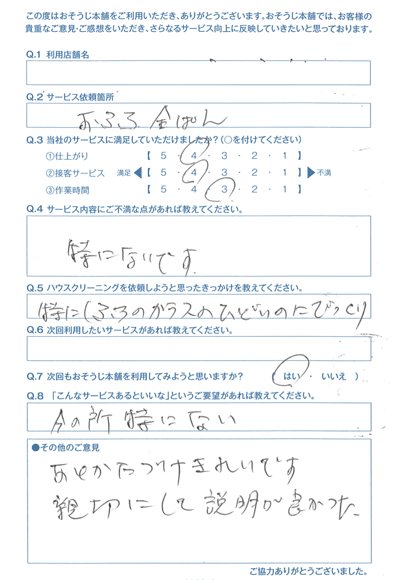 この度はおそうじ本舗をご利用いただき、ありがとうございます。おそうじ本舗では、お客様の
貴重なご意見・ご感想をいただき、さらなるサービス向上に反映していきたいと思っております。
Q.1 利用店舗名
Q.2 サービス依頼箇所
おふろ 全ぱん
Q.3 当社のサービスに満足していただけましたか?(○を付けてください)
①仕上がり 【 5 ・ 4 ・ 3 ・ 2 ・ 1 】
②接客サービス 満足 ◀【 5 ・ 4 ・ 3 ・ 2 ・ 1 】▶ 不満
③作業時間 【 5 ・ 4 ・ 3 ・ 2 ・ 1 】
Q.4 サービス内容にご不満な点があれば教えてください。
特にないです
Q.5 ハウスクリーニングを依頼しようと思ったきっかけを教えてください。
特に ふろのガラスのひどいのにびっくり
Q.6 次回利用したいサービスがあれば教えてください。
Q.7 次回もおそうじ本舗を利用してみようと思いますか? ( はい ・ いいえ )
Q.8 「こんなサービスあるといいな」というご要望があれば教えてください。
今の所特にない
●その他のご意見
あとかたづけきれいです
親切にして説明が良かった
ご協力ありがとうございました。